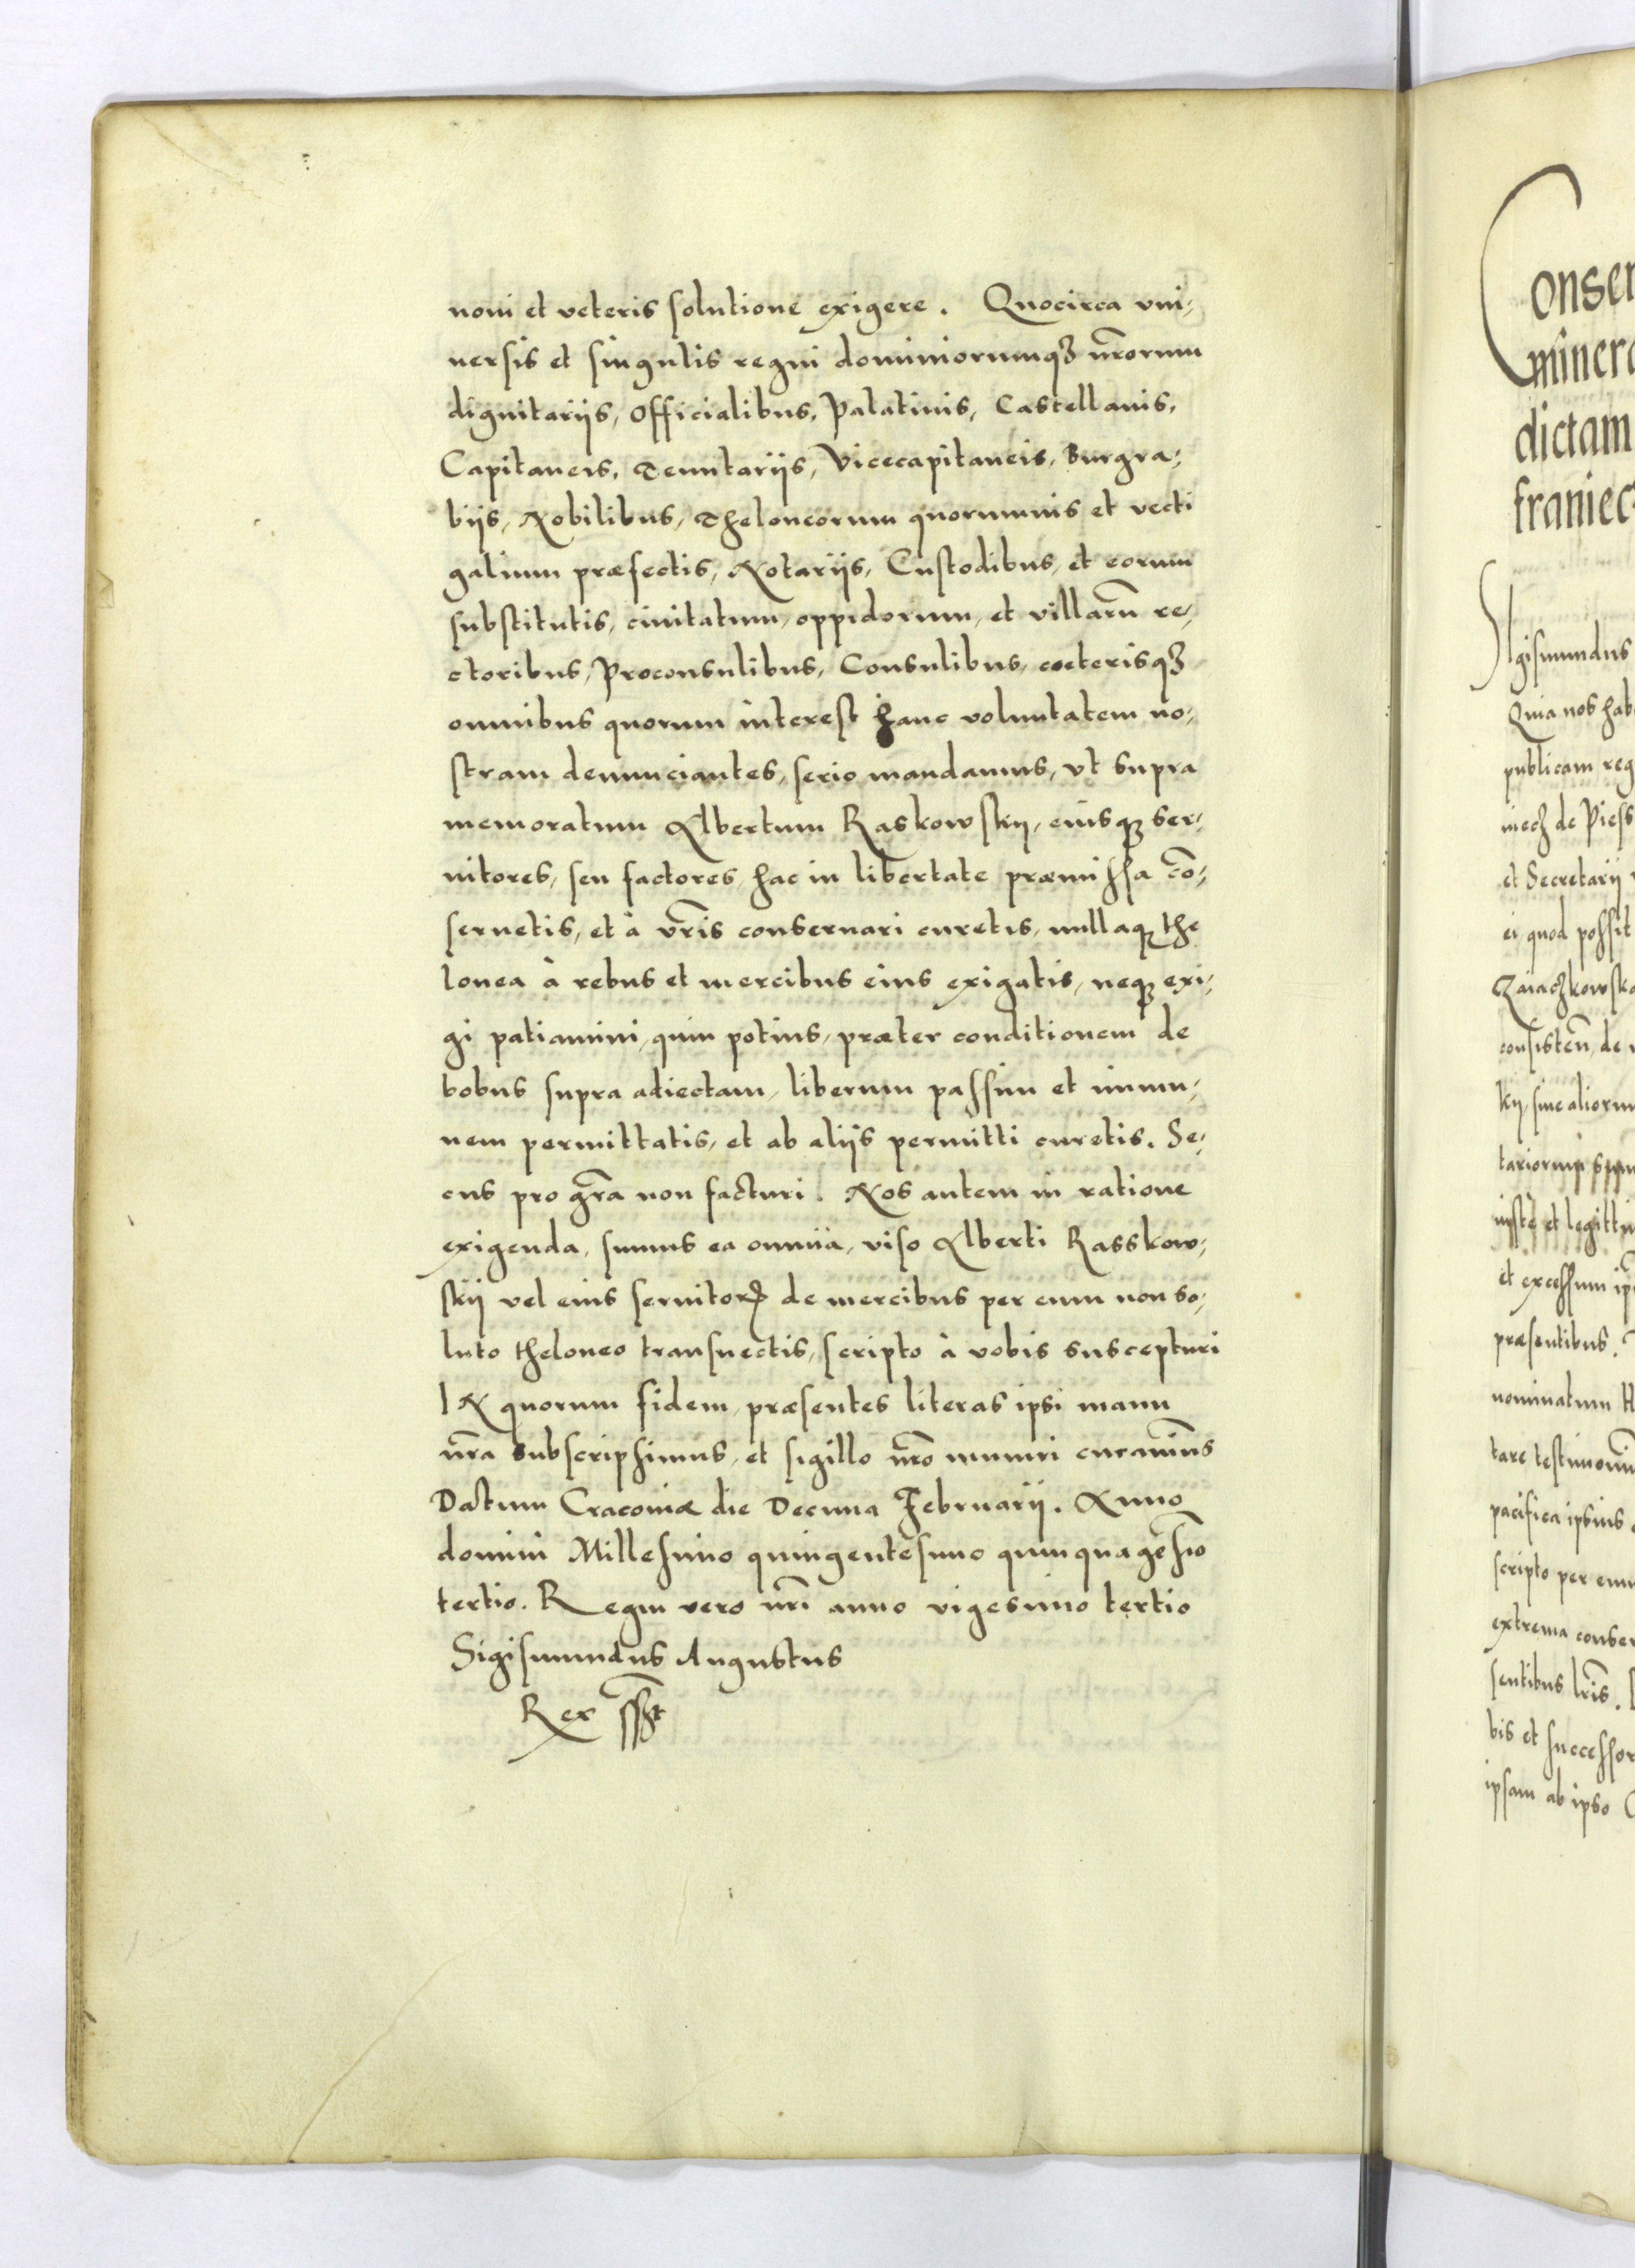 noui et veteris solutione exigere. Quocirca vni,
uersis et singulis regni dominiorumqꝫ nr̃orum
dignitarijs, Officialibus, Palatinis, Castellanis,
Capitaneis, Tenutarijs, Vicecapitaneis, Burgra,
bijs, Nobilibus, Theloneorum quorumuis et vecti
galium præfectis, Notarijs, Custodibus, et eorum
substitutis, ciuitatum, oppidorum, et villarũ re,
ctoribus, Proconsulibus, Consulibus, cœterisqꝫ
omnibus quorum interest hanc voluntatem no,
stram denunciantes, serio mandamus, vt supra
memoratum Albertum Raskowskij, eiusqꝫ ser,
uitores, seu factores hac in libertate præmissa cõ,
seruetis, et à vr̃is conseruari curetis, nullaqꝫ the
lonea à rebus et mercibus eius exigatis, neqꝫ exi,
gi patiamini, quin potius, præter conditionem de
bobus supra adiectam, liberum passim et immu,
nem permittatis, et ab alijs permitti curetis. Se,
cus pro gr̃a non facturi. Nos autem in ratione
exigenda, sumus ea omnia, viso Alberti Rasskow,
skij vel eius seruitorꝝ de mercibus per eum non so,
luto theloneo transuectis, scripto à vobis suscepturi
IN quorum fidem, præsentes literas ipsi manu
nr̃a subscripsimus, et sigillo nr̃o muniri curauim̃us
Datum Cracouiæ die Decima Februarij. Anno
domini Millesimo quingentesimo quinquagẽsĩo
tertio. Regni vero nr̃i anno vigesimo tertio
Sigismundus Augustus
Rex sszt
Onsen
minera
dictam
franiec
Sigismundus
Quia nos hab
publicam reg
niecz de Piess
et Secretarij
ei, quod possit
Czaiaczkowsk
consisteñ, de
kij, siue aliorum
tariorum
iustè et legitti
et excessum
præsentibus.
nominatum H
tare testimoniũ
pacifica ipsius
scripto per eum
extrema conser
sentibus lr̃is.
bis et successor
ipsam ab ipso